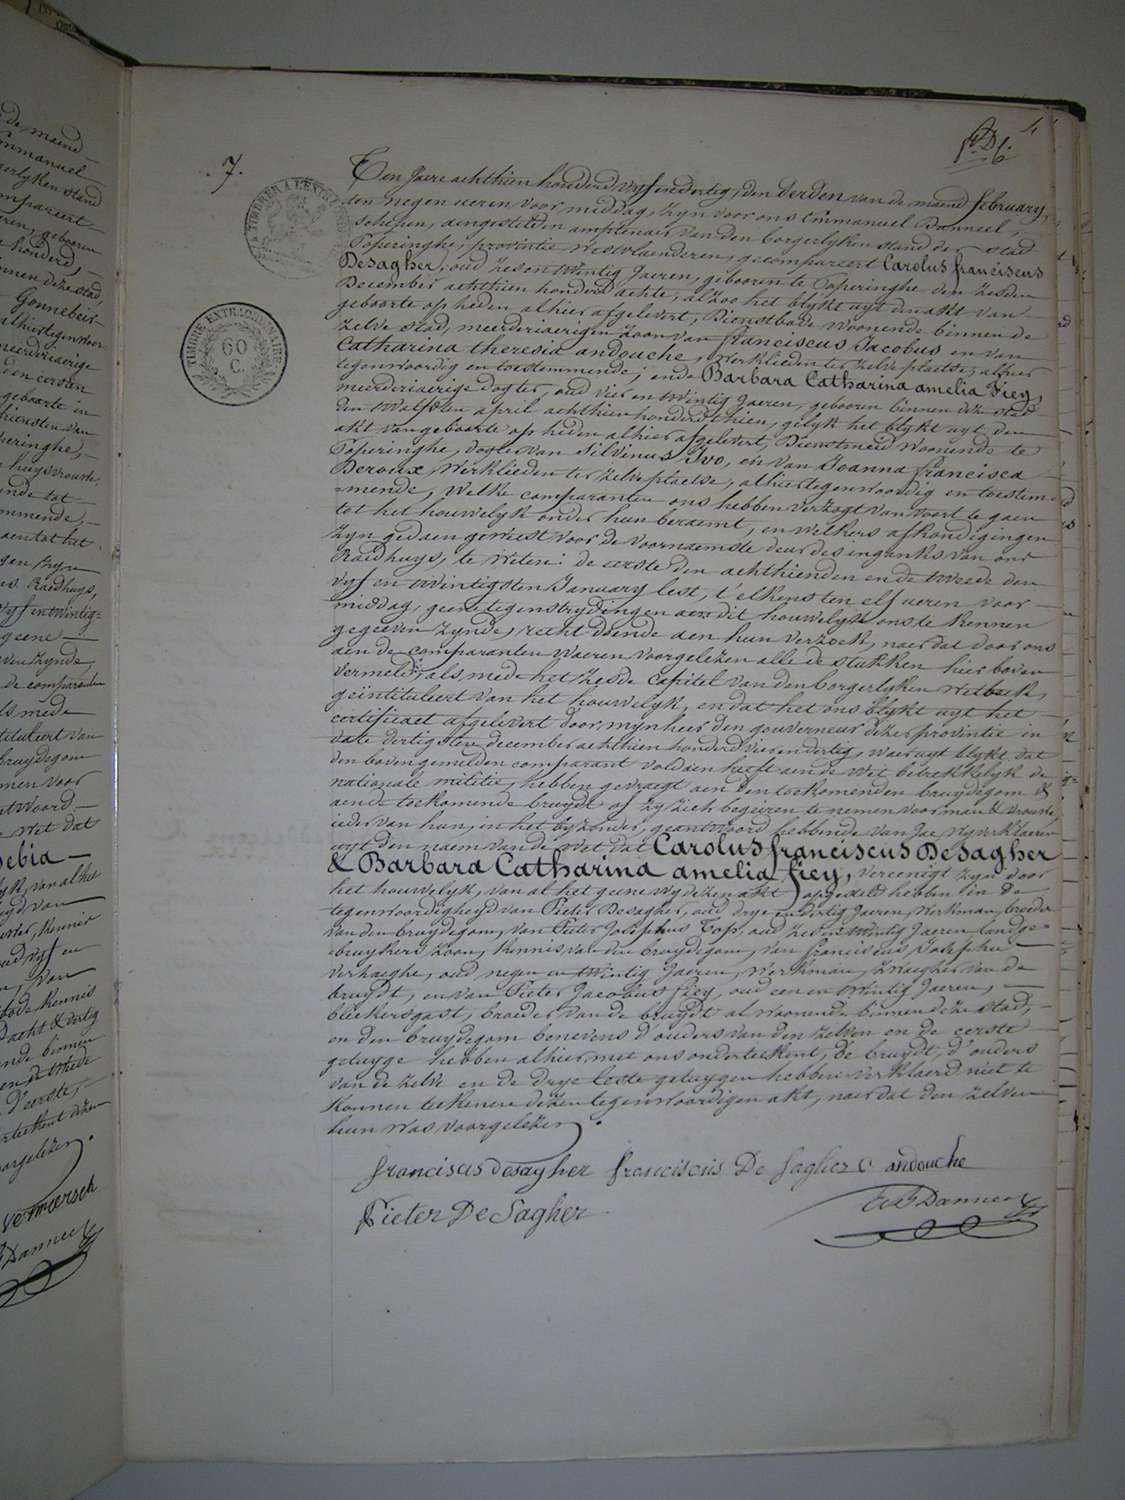 7.
TIMBRE A L'EXTRA
TIMBRE EXTRAORDINAIRE
60
C.
Ten Jaere achthien honderd vyf en dertig, den derden van de maend february,
ten negen ueren voor middag, zyn voor ons Emmanuel Danneel,
schepen, aengestelden amptenaer van den borgerlyken stand der stad
Poperinghe, provintie Westvlaenderen, gecompareert Carolus franciscus
Desagher, oud zes en twintig Jaeren, geboren te Poperinghe den zesden
December achthien honderd achte, alzoo het blykt uyt den akt van
geboorte op heden alhier afgelevert, Dienstbode woonende binnen de
zelve stad, meerderjaerigen zoon van franciscus Jacobus en van
Catharina theresia andouche, werklieden ter zelve plaetse, alhier
tegenwoordig en toestemmende; ende Barbara Catharina amelia Fiey,
meerderjaerige dogter, oud vier en twintig Jaeren, gebooren binnen deze stad
den twalfsten april achthien honderd thien, gelyk het blykt uyt den
akt van geboorte op heden alhier afgelevert, Dienstmeid woonende te
Poperinghe, dogter van Silvinus Ivo, en van Joanna francisca
Deroux, werklieden ter zelve plaetse, alhier tegenwoordig en toestem-
-mende, welke comparanten ons hebben verzogt van voort te gaen
tot het houwelyk onder hun beraemt, en welkers afkondigingen
zyn gedaen geweest voor de voornaemste deur des ingangs van ons
Raedhuys, te weten: de eerste den achthienden en de tweede den
vyf en twintigsten January lest, t'elkens ten elf ueren voor
middag, geene tegenstrydingen aen dit houwelyk ons te kennen
gegeven zynde, recht doende aen hun verzoek, naer dat door ons
aen de comparanten waeren voorgelezen alle de stukken hier boven
vermeld, als mede het zesde Capitel van den borgerlyken wetboek,
geintituleert van het houwelyk, en dat het ons blykt uyt het
certificaet afgelevert door mynheer den gouverneur dezer provintie in
date dertigsten december achthien honderd vier en dertig, waer uyt blykt dat
den bovengemelden comparant voldaen heeft aen de wet betrekkelyk de
nationale militie, hebben gevraegt aen den toekomenden bruydegom &
aen de toekomende bruydt of zy zich begeiren te nemen voor man & vrouw,
ieder van hun, in het byzonder, geantwoord hebbende van Jae, wy verklaeren
uyt den naem van de wet dat Carolus franciscus Desagher
& Barbara Catharina amelia fiey, vereenigt zyn door
het houwelyk, van al het geene wy dezen akt opgesteld hebben in de
tegenwoordigheyd van Pieter Desagher, oud drye en dertig Jaeren, werkman, broeder
van den bruydegom, van Pieter Josephus Top, oud zes en twintig Jaeren landge-
-bruykers zoon, kennis van den bruydegom, van franciscus Josephus
Verhaeghe, oud negen en twintig Jaeren, werkman, zwaegher van de
bruydt, en van Pieter Jacobus fiey, oud een en twintig Jaeren,
bleekersgast, broeder van de bruydt al woonende binnen deze stad,
en den bruydegom benevens d'ouders van den zelven en de eerste
getuyge hebben alhier met ons onderteekent, de bruydt, d'ouders
van de zelve en de drye leste getuygen hebben verklaerd niet te
konnen teekenen dezen tegenwoordigen akt, naer dat den zelven
hun was voorgelezen.
francisus desagher franciscus De Sagher C andouche
Pieter De Sagher
Danneel